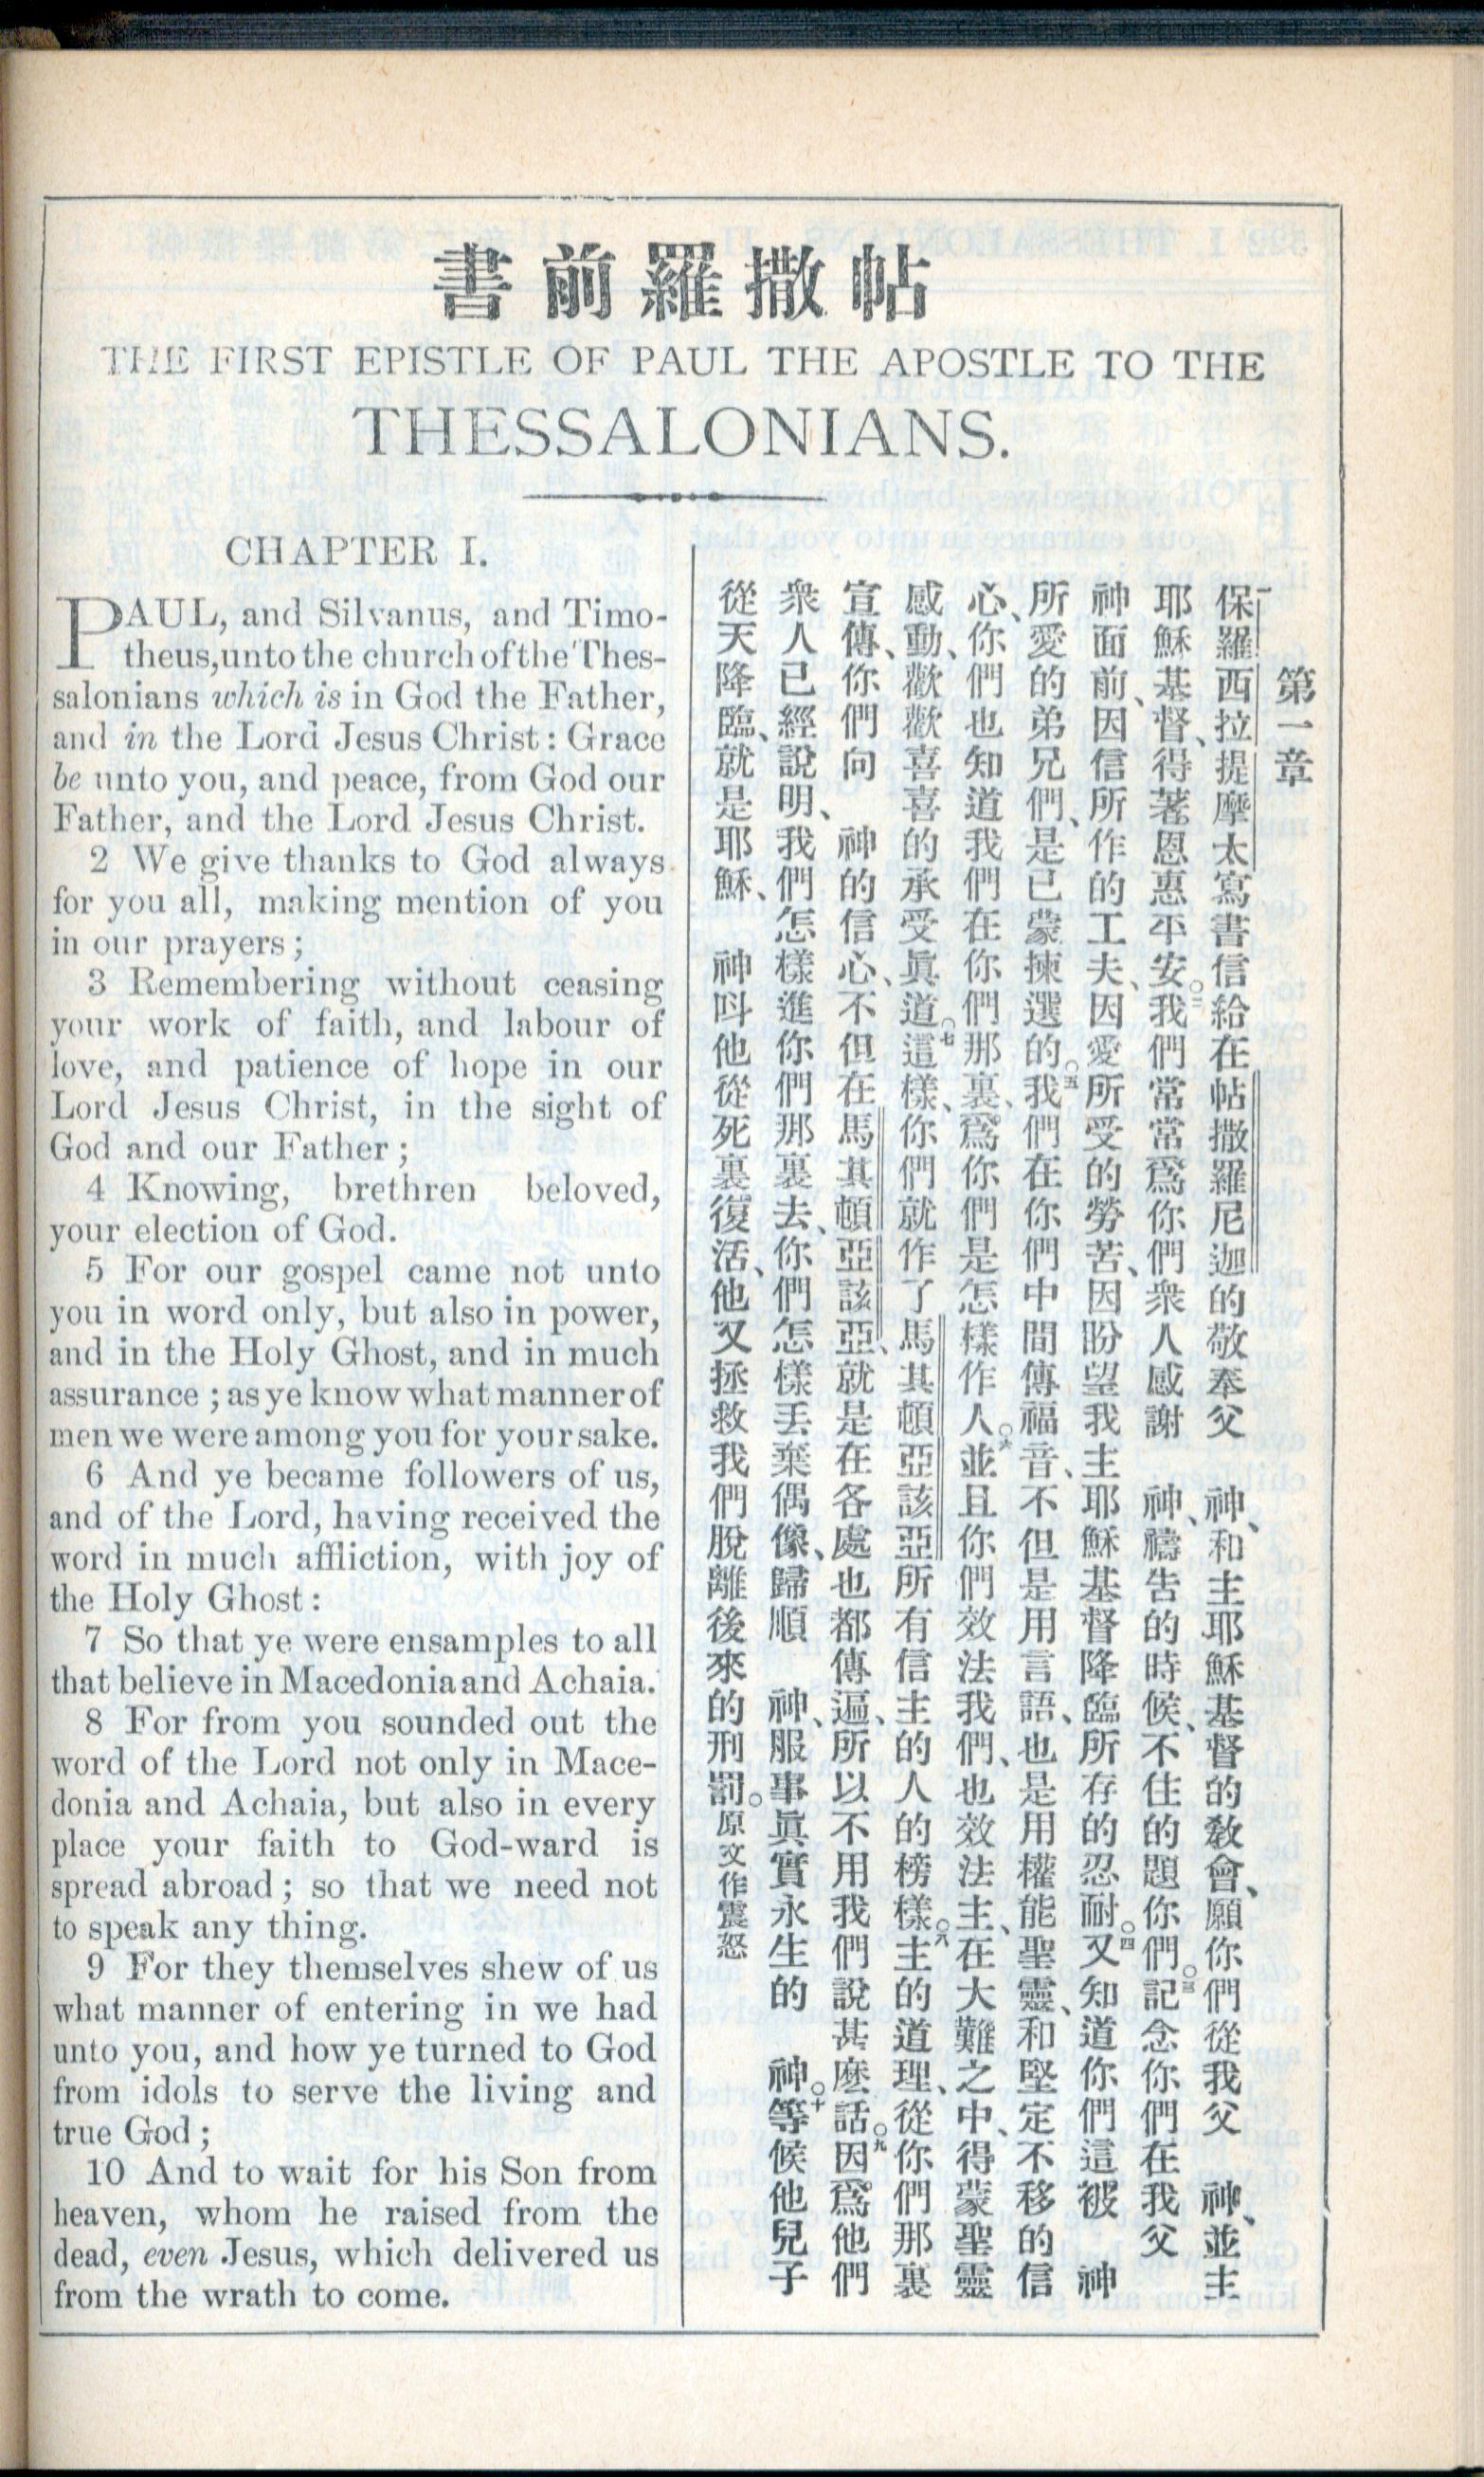 書前羅撒帖
THE FIRST EPISTLE OF PAUL THE APOSTLE TO THE
THESSALONIANS.
CHAPTER I.
PAUL, and Silvanus, and Timo-
theus, unto the church of the Thes-
salonians which is in God the Father,
and in the Lord Jesus Christ: Grace
be unto you, and peace, from God our
Father, and the Lord Jesus Christ.
2 We give thanks to God always
for you all, making mention of you
in our prayers;
3 Remembering without ceasing
your work of faith, and labour of
love, and patience of hope in our
Lord Jesus Christ, in the sight of
God and our Father;
4 Knowing, brethren beloved,
your election of God.
5 For our gospel came not unto
you in word only, but also in power,
and in the Holy Ghost, and in much
assurance; as ye know what manner of
men we were among you for your sake.
6 And ye became followers of us,
and of the Lord, having received the
word in much affliction, with joy of
the Holy Ghost:
7 So that ye were ensamples to all
that believe in Macedonia and Achaia.
8 For from you sounded out the
word of the Lord not only in Mace-
donia and Achaia, but also in every
place your faith to God-ward is
spread abroad; so that we need not
to speak any thing.
9 For they themselves shew of us
what manner of entering in we had
unto you, and how ye turned to God
from idols to serve the living and
true God;
10 And to wait for his Son from
heaven, whom he raised from the
dead, even Jesus, which delivered us
from the wrath to come.
第一章
一保羅西拉提摩太寫書信給在帖撒羅尼迦的敬奉父 神、和主耶穌基督的教會、願你們從我父 神、並主
耶穌基督、得著恩惠平安。二我們常常爲你們衆人感謝 神、禱告的時候、不住的題你們。三記念你們在我父
神面前、因信所作的工夫、因愛所受的勞苦、因盼望我主耶穌基督降臨所存的忍耐。四又知道你們這被 神
所愛的弟兄們、是已蒙揀選的。五我們在你們中間傳福音、不但是用言語、也是用權能聖靈、和堅定不移的信
心、你們也知道我們在你們那裏、爲你們是怎樣作人。六並且你們效法我們、也效法主、在大難之中、得蒙聖靈
感動、歡歡喜喜的承受眞道。七這樣、你們就作了馬其頓亞該亞所有信主的人的榜樣。八主的道理、從你們那裏
宣傳、你們向 神的信心、不但在馬其頓亞該亞、就是在各處也都傳遍、所以不用我們說甚麽話。九因爲他們
衆人已經說明、我們怎樣進你們那裏去、你們怎樣丟棄偶像、歸順 神、服事眞實永生的 神。十等候他兒子
從天降臨、就是耶穌、 神呌他從死裏復活、他又拯救我們脫離後來的刑罰。原文作震怒